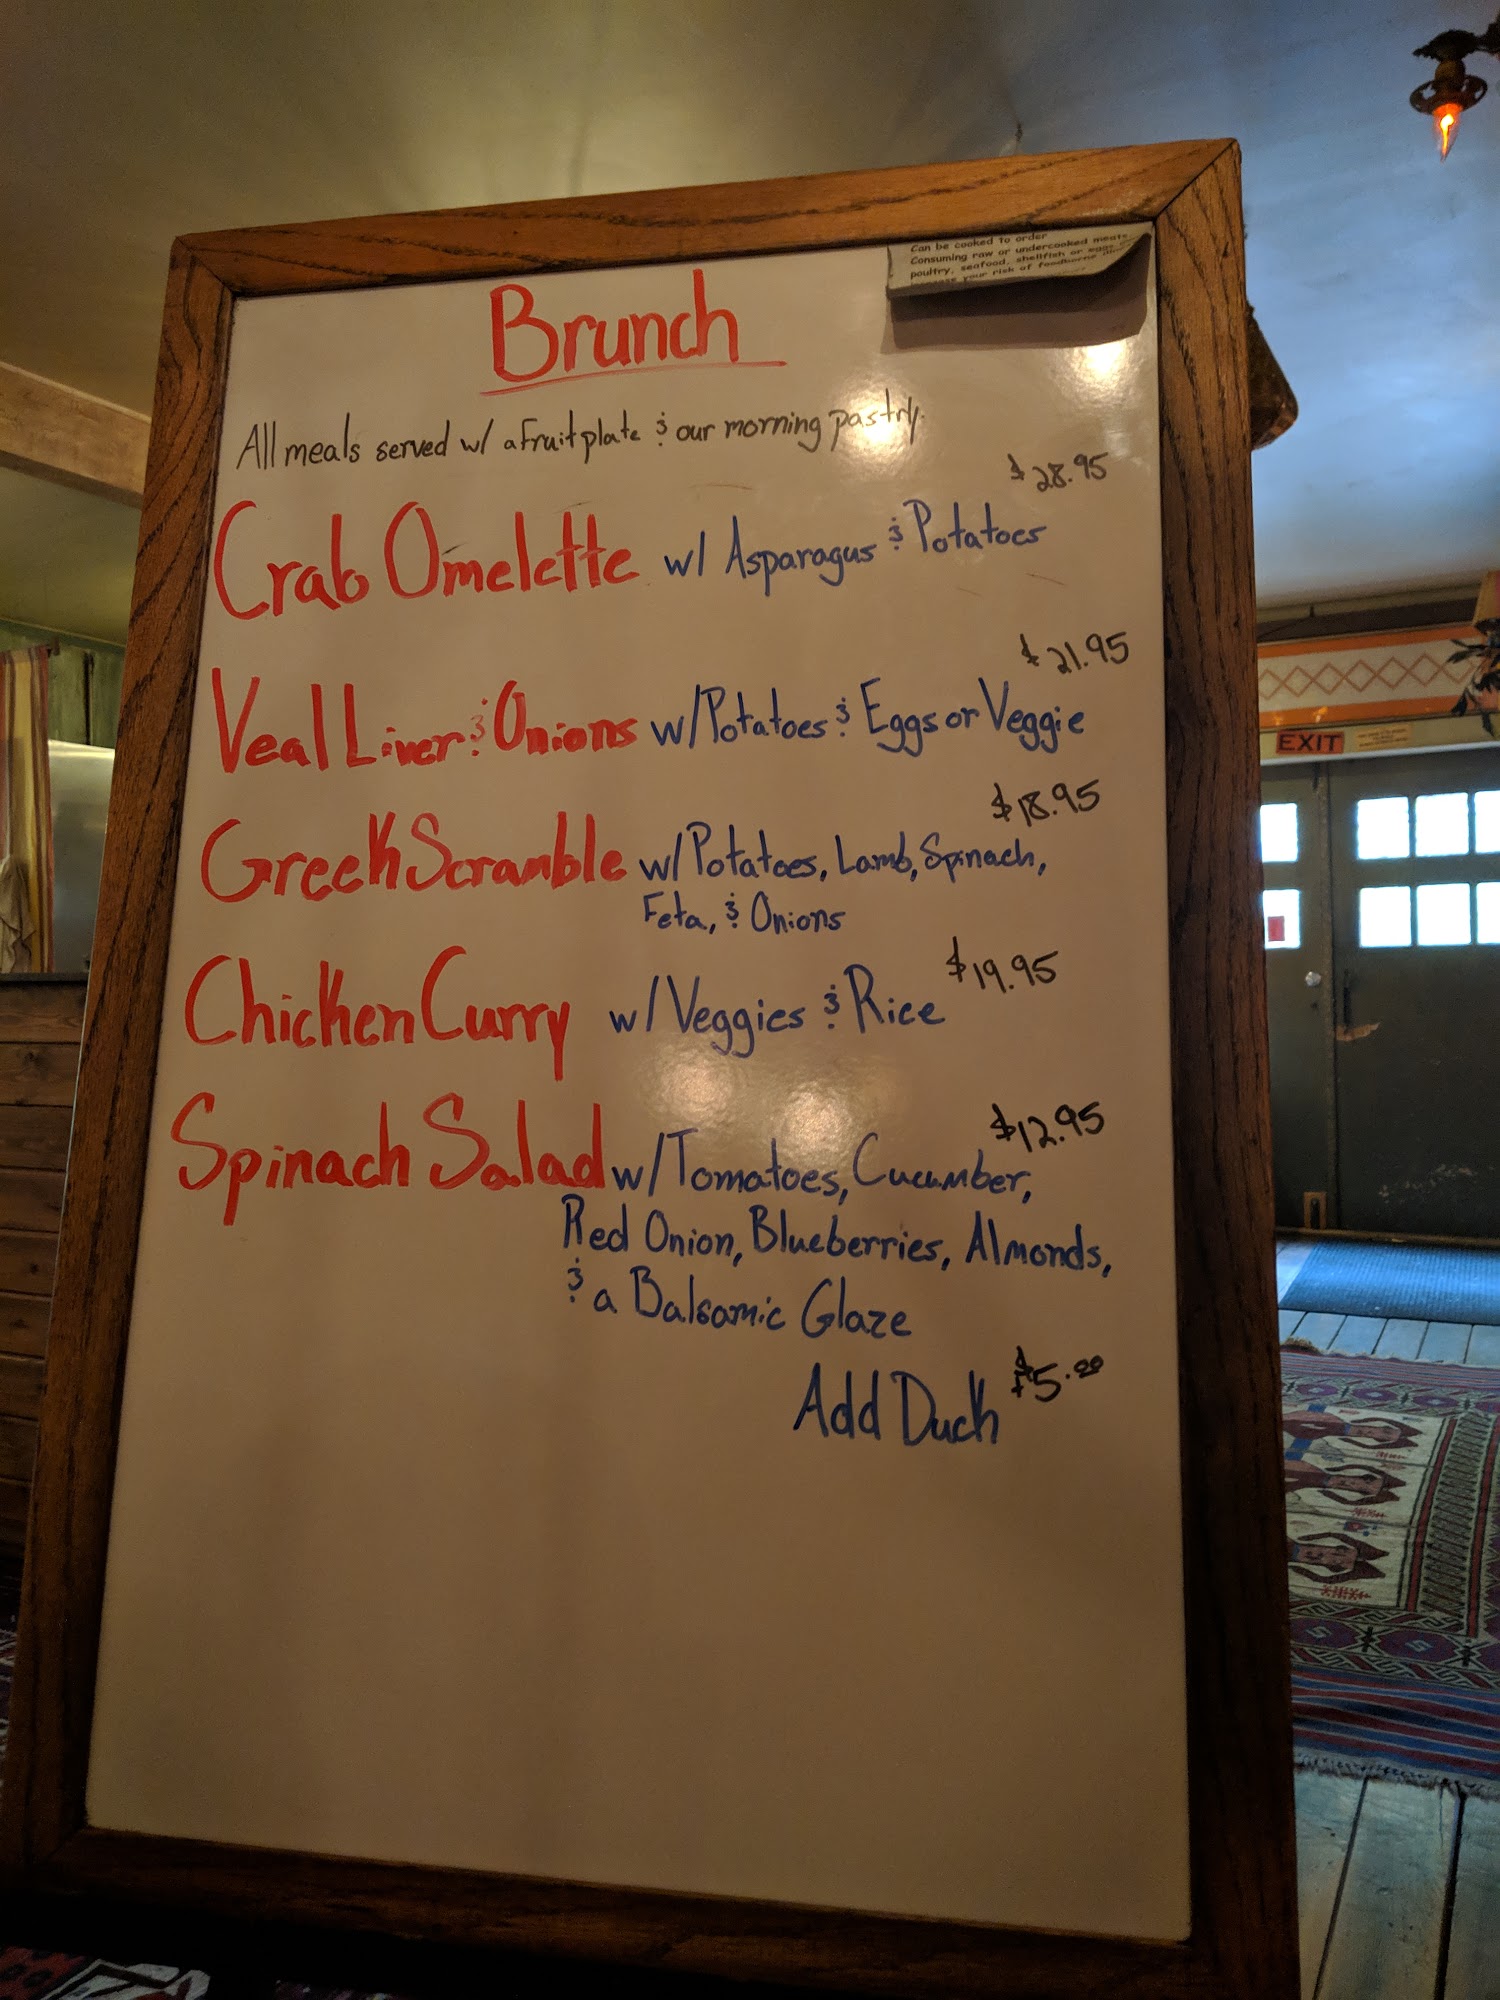 Can be cooked to order
Consuming raw or undercooked meats,
poultry, seafood, shellfish or eggs
your risk of foodborne
Brunch
All meals served w/ a fruit plate & our morning pastry.
$28.95
Crab Omelette w/ Asparagus & Potatoes
$21.95
Veal Liver & Onions w/ Potatoes & Eggs or Veggie
$18.95
Greek Scramble w/ Potatoes, Lamb, Spinach,
Feta, & Onions
Chicken Curry w/ Veggies & Rice $19.95
$12.95
Spinach Salad w/ Tomatoes, Cucumber,
Red Onion, Blueberries, Almonds,
& a Balsamic Glaze
Add Duck $5.00
EXIT